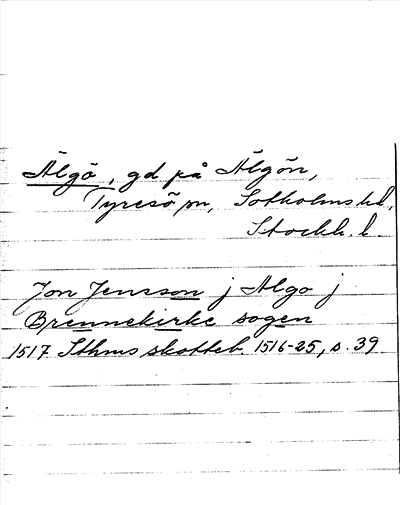 Älgö, gd på Älgön,
Tyresö sn, Sotholms hd,
Stockh. l.
Jon Jensson j Algo j
Brennekirke sogen
1517 Sthms skotteb. 1516-25, s. 39